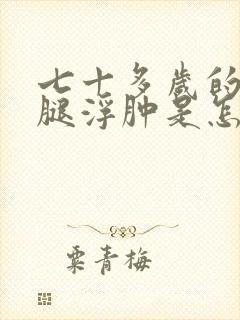 七十多岁的
腿浮肿是怎
粟青梅